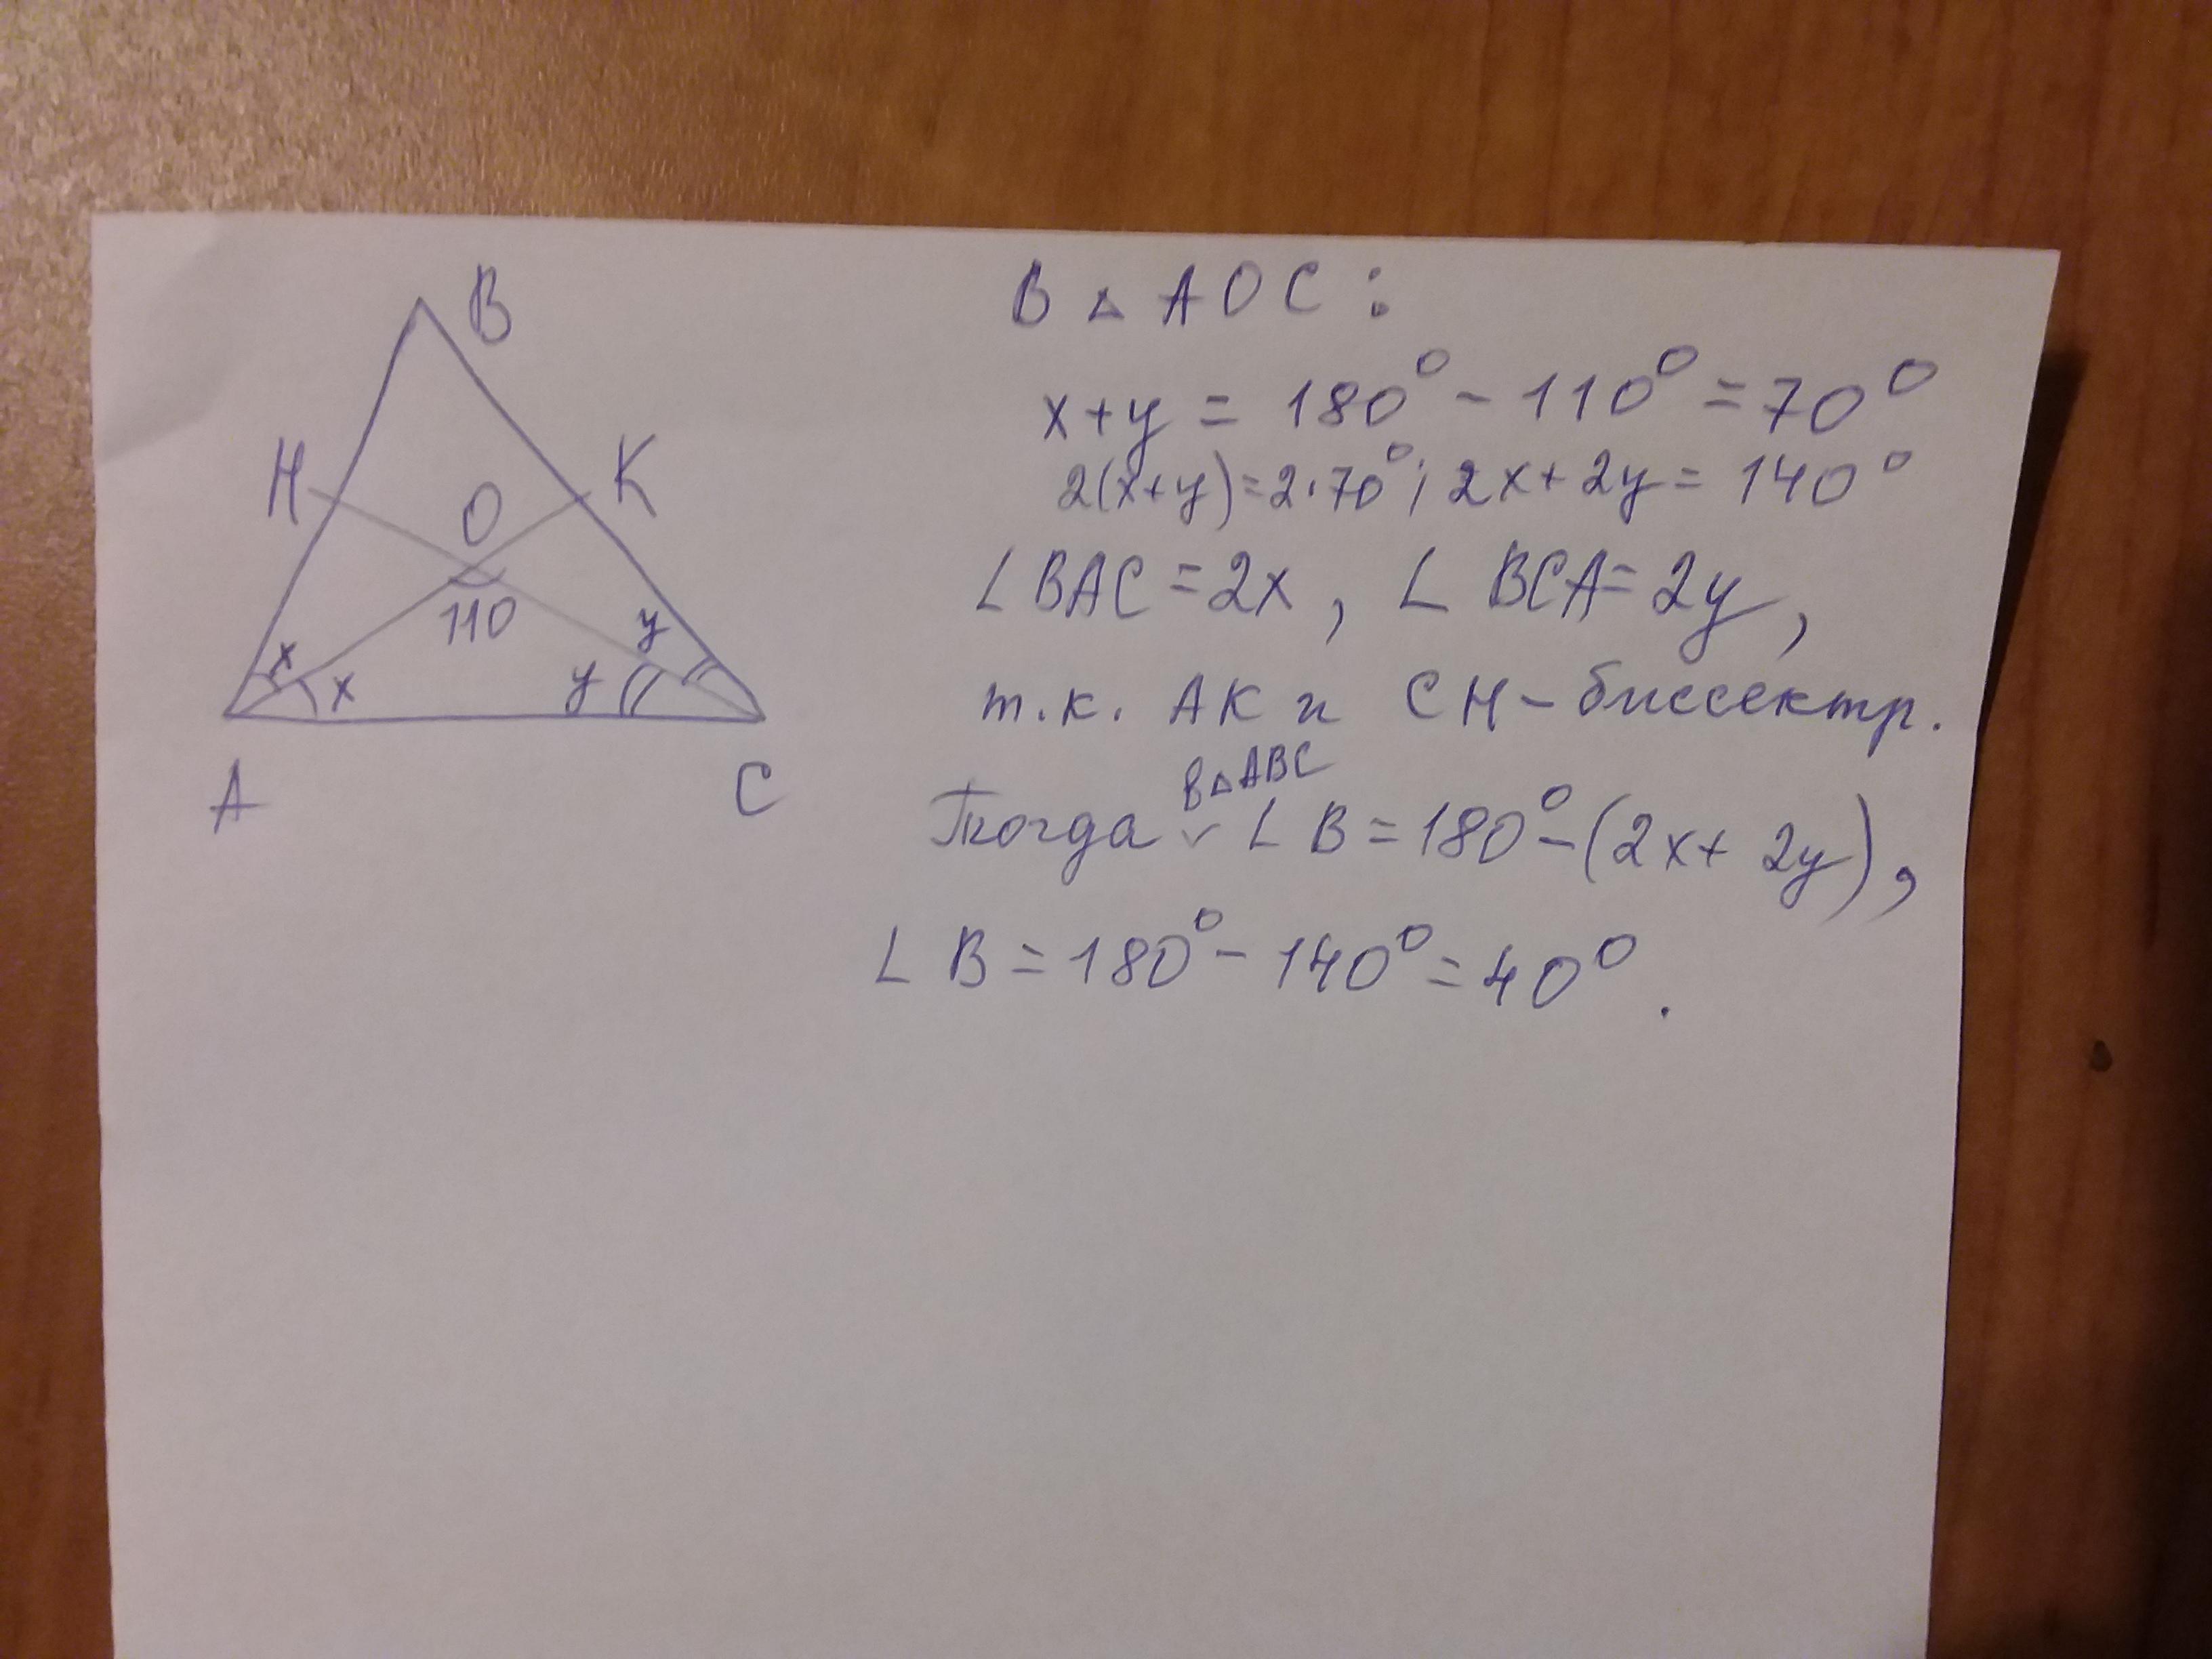 B
H
K
O
110
x
x
y
y
A
C
В △ AOC :
x+y = 180° - 110° = 70°
2(x+y)=2·70°; 2x+2y = 140°
∠ BAC = 2x, ∠ BCA = 2y,
т.к. AK и CH - биссектр.
в △ ABC
Тогда ✓ ∠ B = 180° - (2x + 2y),
∠ B = 180° - 140° = 40°.